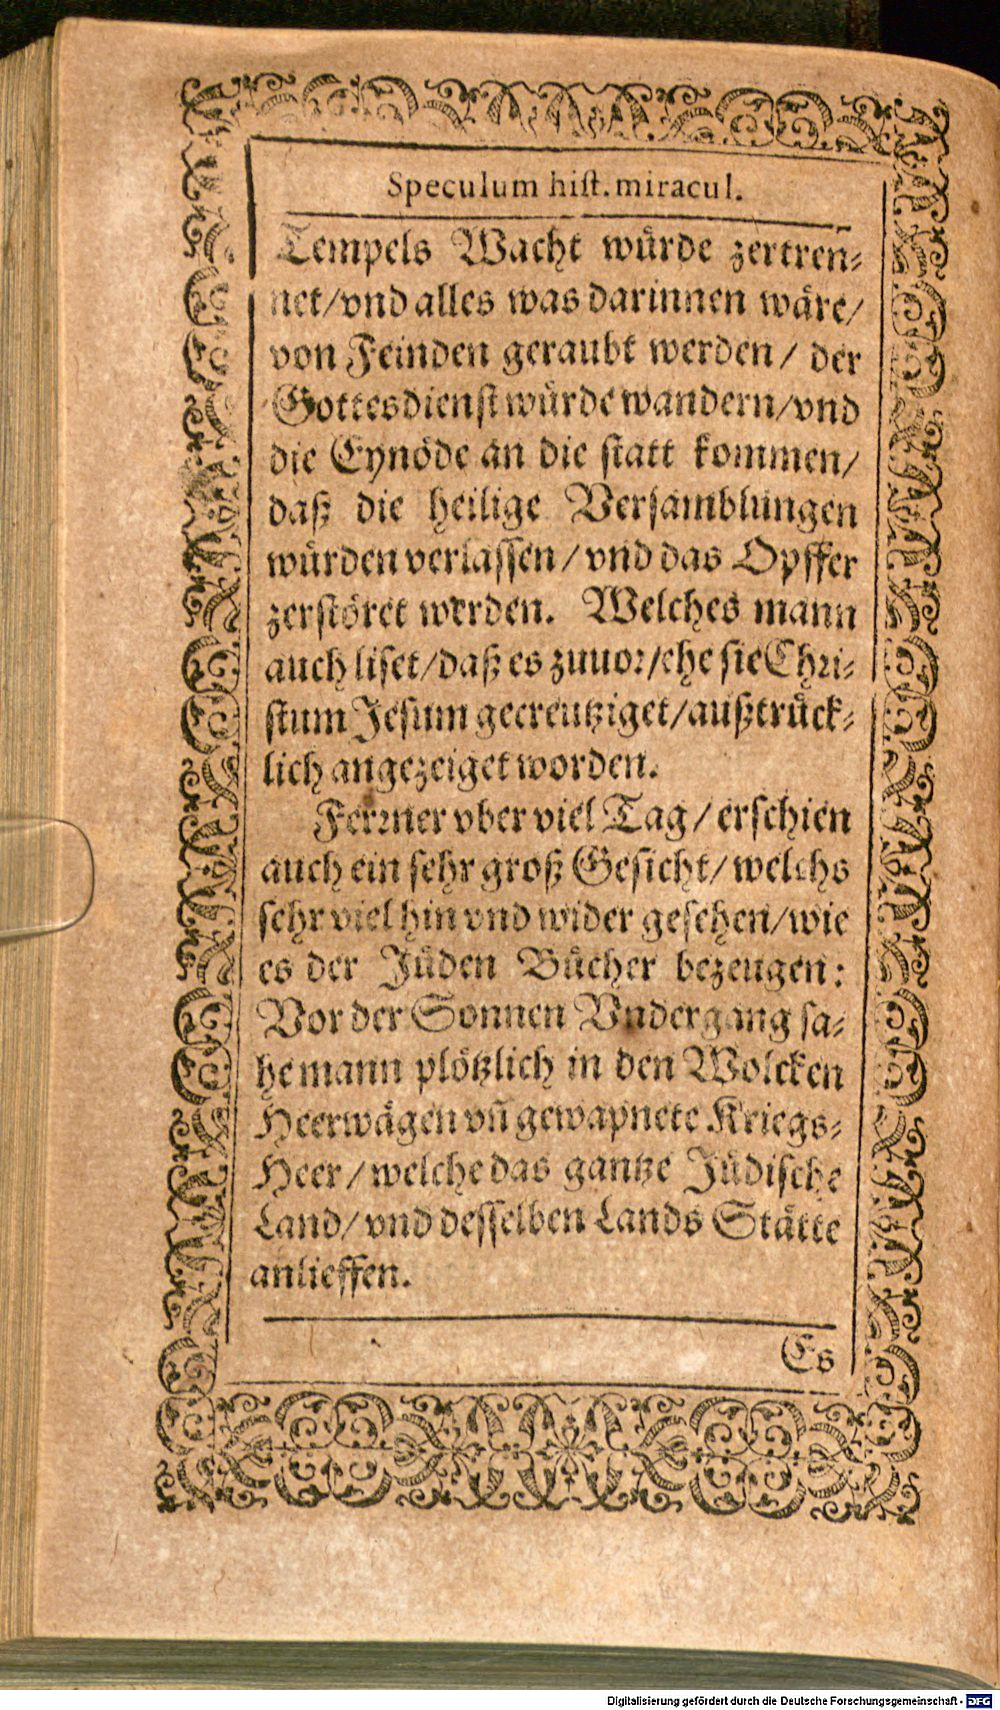 Speculum hist. miracul.
Tempels Wacht würde zertren-
net/vnd alles was darinnen wäre/
von Feinden geraubt werden/ der
Gottesdienst würde wandern/vnd
die Eynöde an die statt kommen/
daß die heilige Versamblungen
würden verlassen/vnd das Opffer
zerstöret werden. Welches mann
auch liset/daß es zuuor/ehe sie Chri-
stum Jesum gecreutziget/außtrück-
lich angezeiget worden.
Ferrner vber viel Tag/ erschien
auch ein sehr groß Gesicht/ welchs
sehr viel hin vnd wider gesehen/wie
es der Jüden Bücher bezeugen:
Vor der Sonnen Vndergang sa-
he mann plötzlich in den Wolcken
Heerwägen vñ gewapnete Kriegs-
Heer/welche das gantze Jüdische
Land/vnd desselben Lands Stätte
anlieffen.
Es
Digitalisierung gefördert durch die Deutsche Forschungsgemeinschaft - DFG